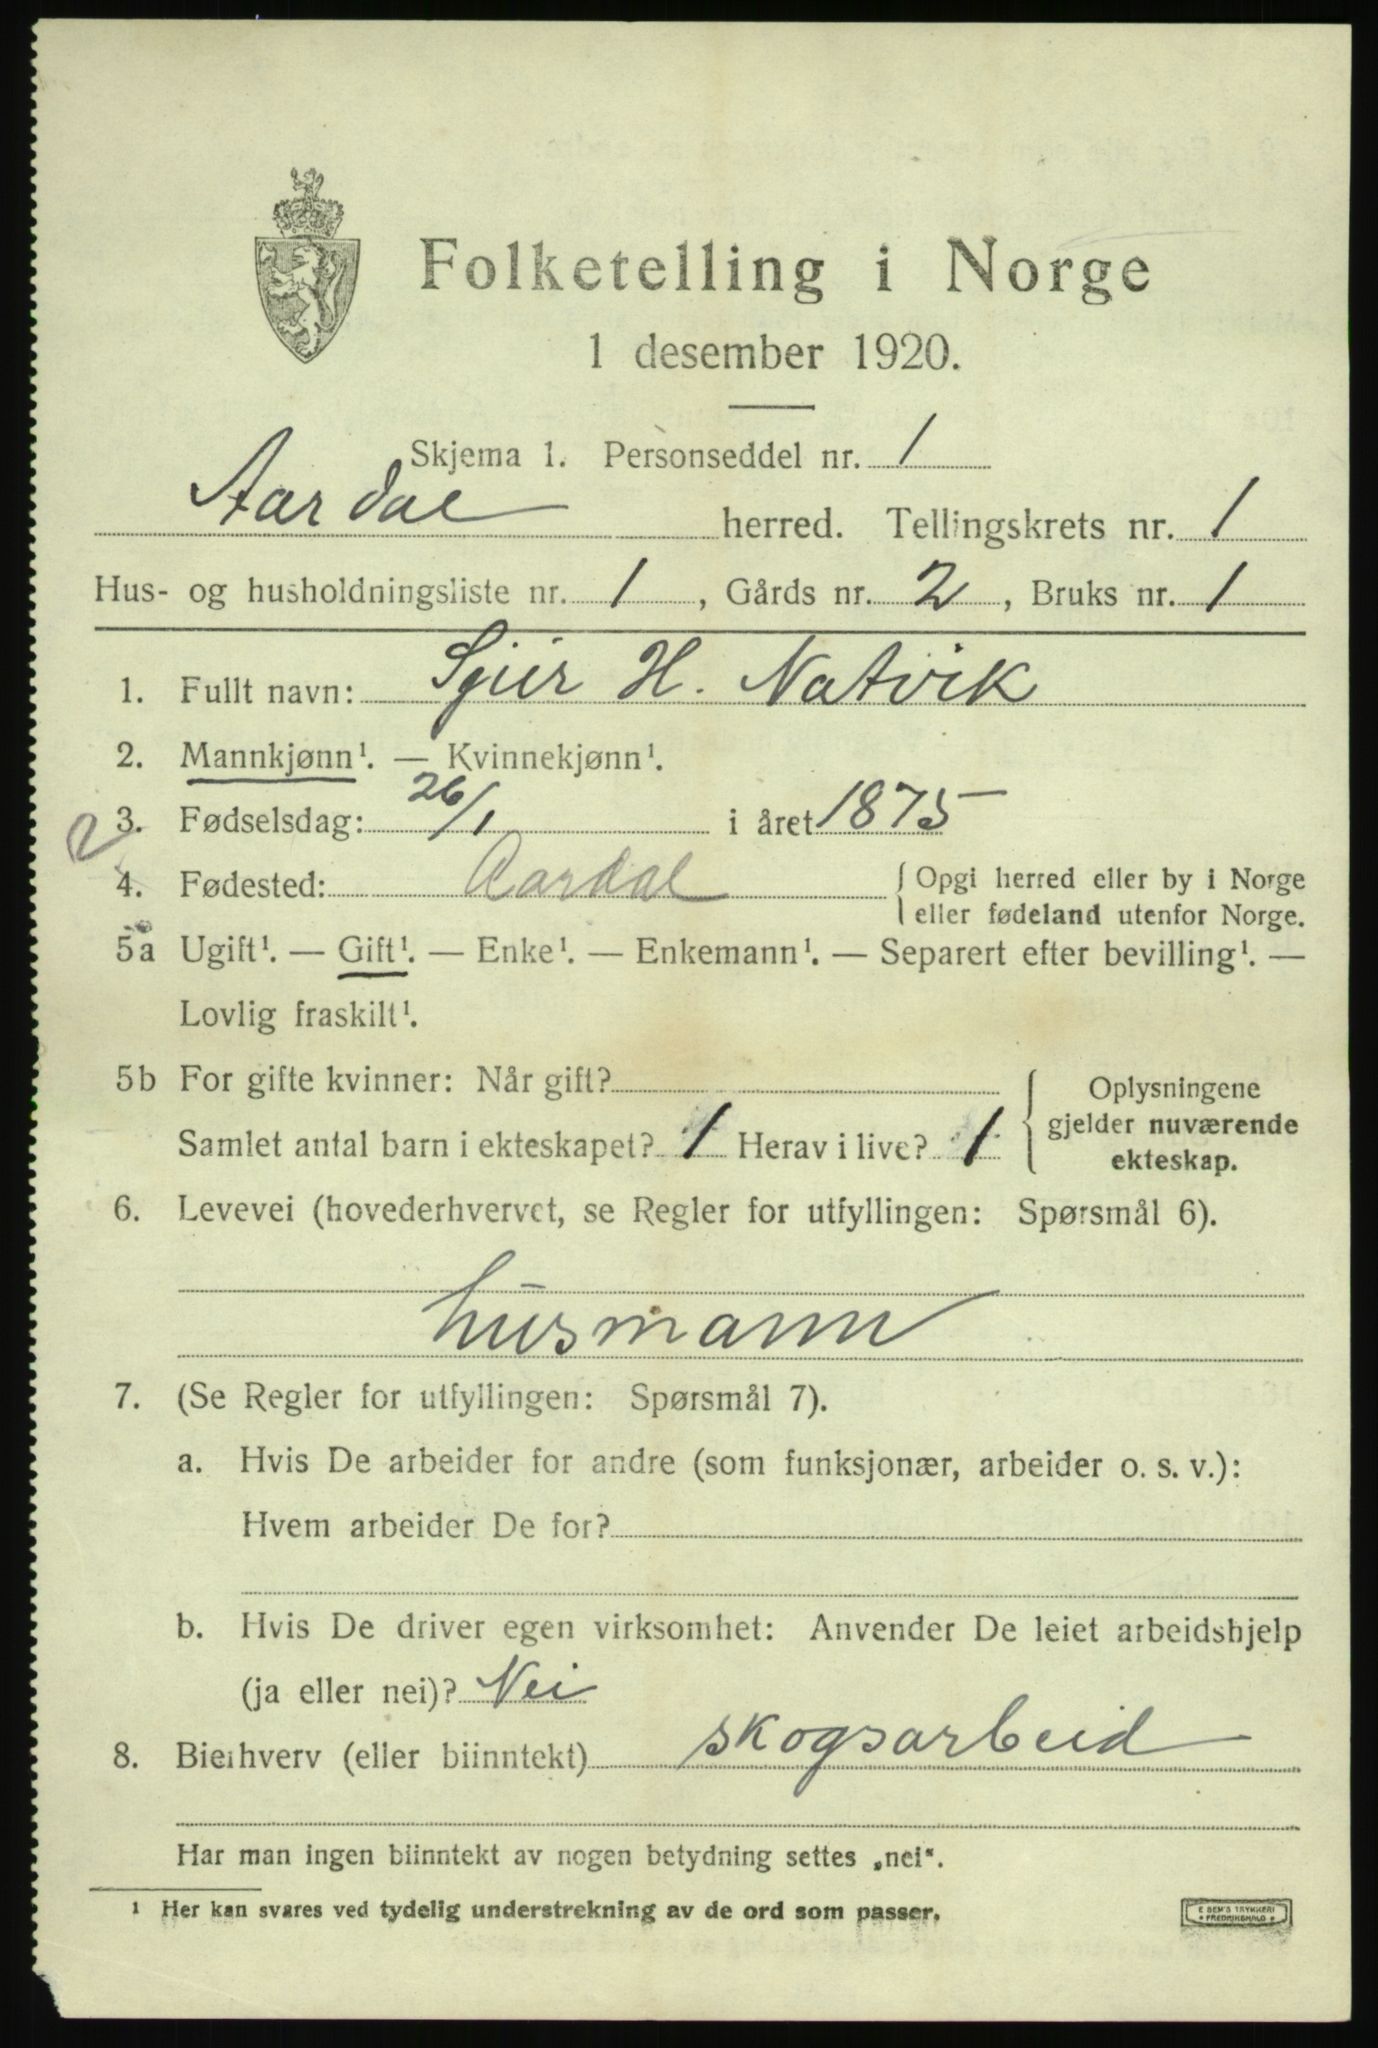 Folketelling i Norge
1 desember 1920.
Skjema 1. Personseddel nr. 1
Aardal herred. Tellingskrets nr. 1
Hus- og husholdningsliste nr. 1, Gårds nr. 2, Bruks nr. 1
1. Fullt navn: H. Natvik
2. Mannkjønn¹. — Kvinnekjønn¹.
2
3. Fødselsdag: 26/1 i året 1875
4. Fødested: Aardal { Opgi herred eller by i Norge
eller fødeland utenfor Norge.
5a Ugift¹. — Gift¹. — Enke¹. — Enkemann¹. — Separert efter bevilling¹. —
Lovlig fraskilt¹.
5b For gifte kvinner: Når gift?
Samlet antal barn i ekteskapet? 1 Herav i live? 1
{ Oplysningene
gjelder nuværende
ekteskap.
6. Levevei (hovederhvervet, se Regler for utfyllingen: Spørsmål 6).
husmann
7. (Se Regler for utfyllingen: Spørsmål 7).
a. Hvis De arbeider for andre (som funksjonær, arbeider o. s. v.):
Hvem arbeider De for?
b. Hvis De driver egen virksomhet: Anvender De leiet arbeidshjelp
(ja eller nei)? Nei
8. Bierhverv (eller biinntekt) skogsarbeid
Har man ingen biinntekt av nogen betydning settes „nei“.
¹ Her kan svares ved tydelig understrekning av de ord som passer.
E SEM'S TRYKKERI
FREDRIKSHALD